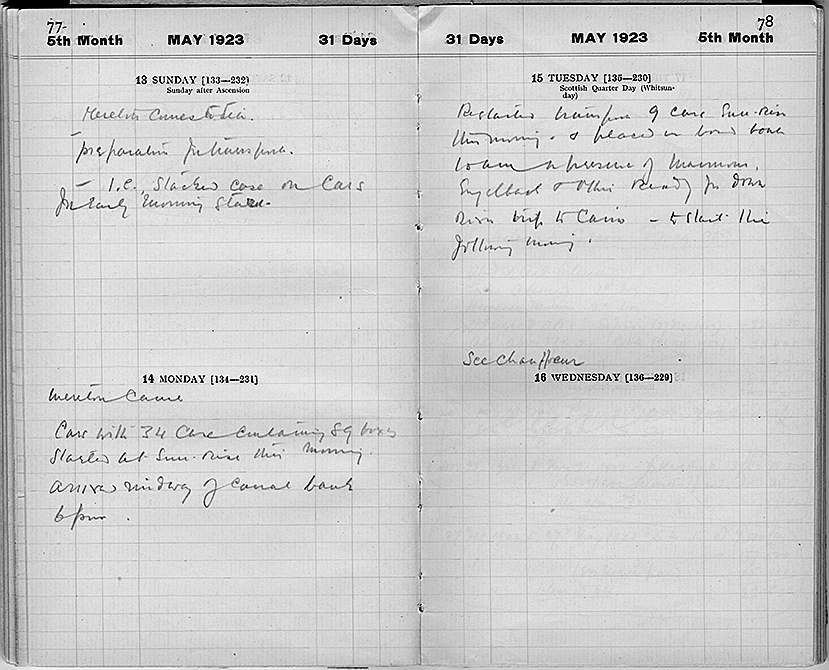 77-
5th Month MAY 1923 31 Days
13 SUNDAY [133—232]
Sunday after Ascension
Merton comes to tea.
preparation for transport.
— I.e. Stacked case on Cars
for Early morning Start.
14 MONDAY [134—231]
Merton came
Cars with 34 Case containing 89 boxes
Started at Sun-rise this morning.
arrived midway of canal bank
6 pm.
78
31 Days MAY 1923 5th Month
15 TUESDAY [135—230]
Scottish Quarter Day (Whitsun-
day)
Restarted transport of case Sun-rise
this morning & placed on board boat
10 am in presence of
Engelbach & Ready for down
River trip to Cairo — to start the
following morning.
See Chauffeur
16 WEDNESDAY [136—229]